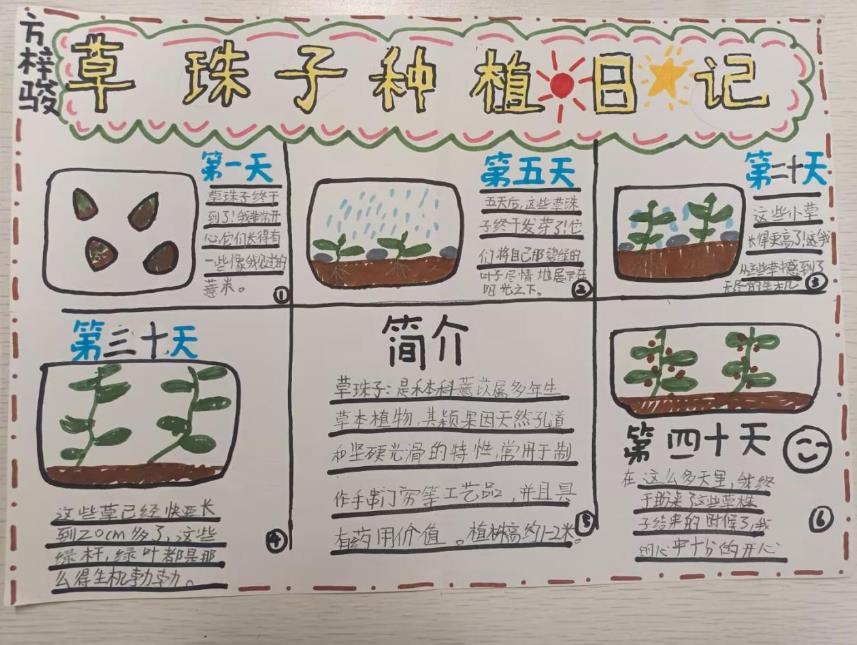 方梓骏
草珠子种植日记
第一天
草珠子终于
到了！我非常开
心，它们长得有
一些像我见过的
薏米。
①
第五天
五天后，这些草珠
子终于发芽了！它
们将自己那
叶子尽情地展开在
阳光之下。
②
第二十天
这些小草
长得更高了！这我
从这些草中感到了
的生机
③
第三十天
这些草已经快要长
到20cm多了，这些
绿杆，绿叶都是那
么得生机勃勃。
④
简介
草珠子：是禾本科薏苡属多年生
草本植物，其颖果因天然孔道
和坚硬光滑的特性，常用于制
作手串门帘等工艺品，并且具
有药用价值。植株高约1-2米。
⑤
第四十天
在这么多天里，我终
于盼来了这些草珠
子结果的时候了，我
的心中十分的开心
⑥